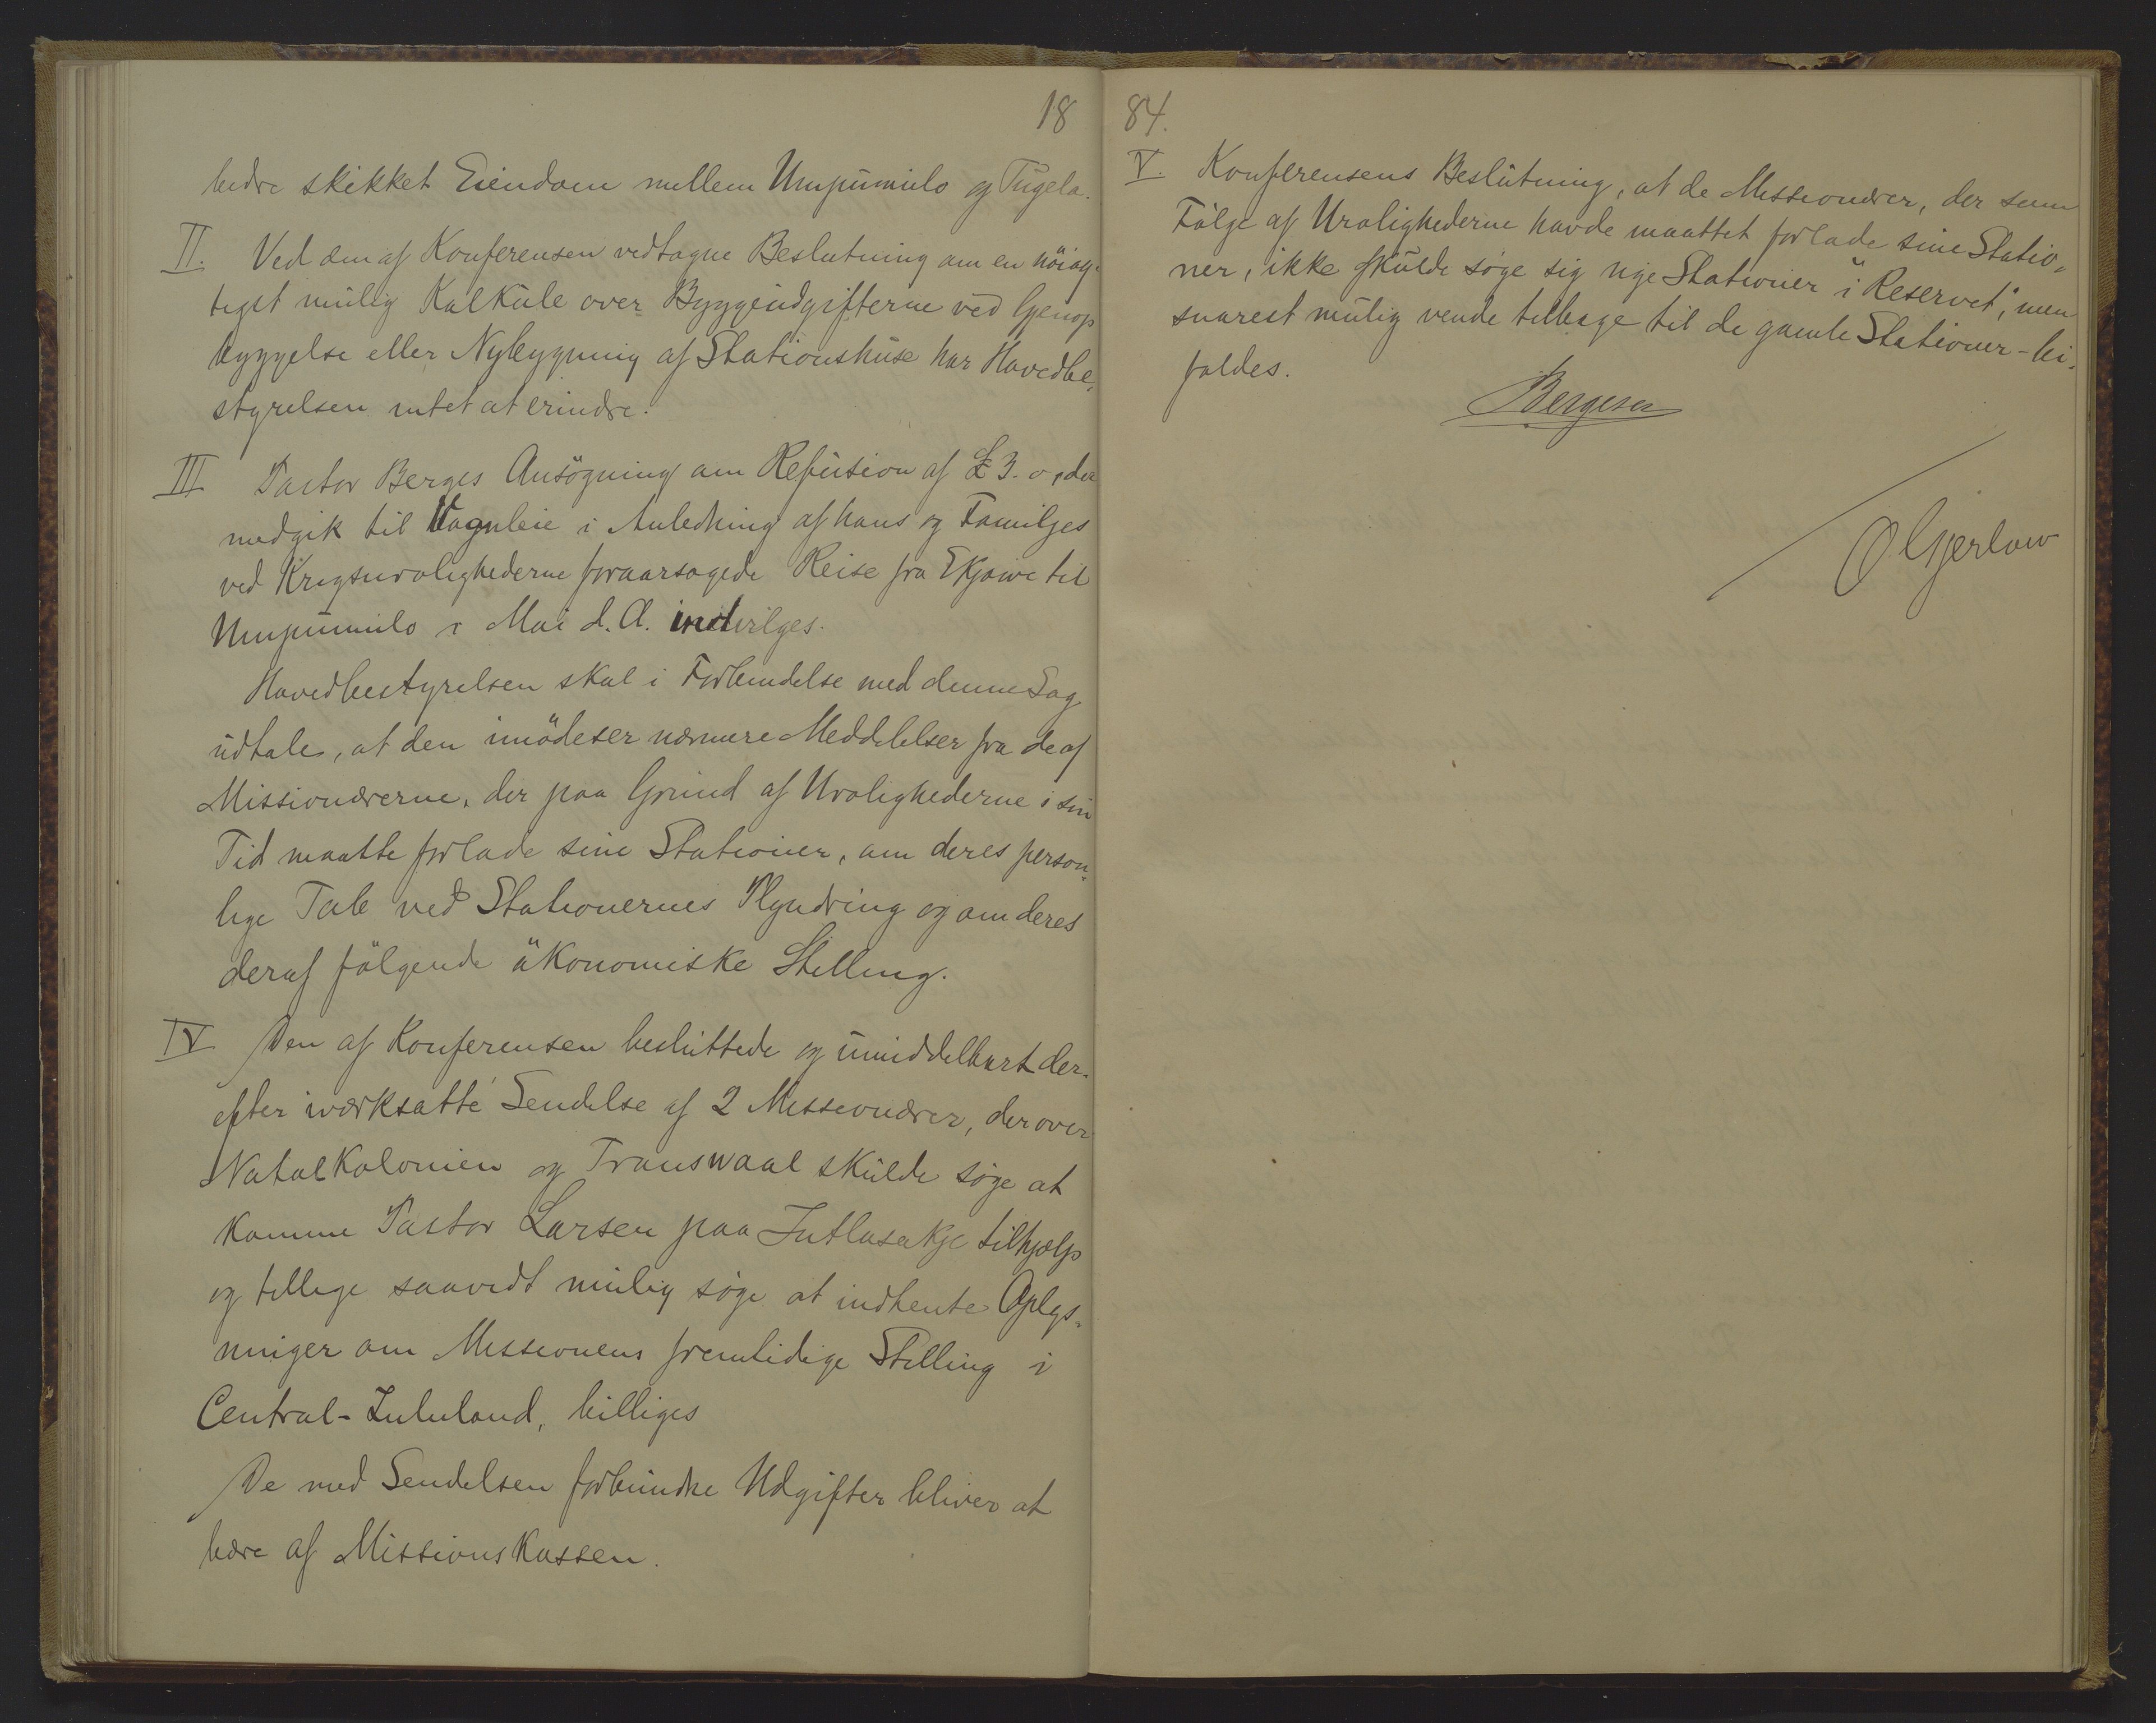 18
bedre skikket Eiendom mellem Umpumulo og Tugela.
II. Ved den af Konferensen vedtagne Beslutning om en nöiag-
tigst mulig Kalkule over Byggeudgifterne ved Gjenop
byggelse eller Nybygning af Stationshuse har Hovedbe-
styrelsen intet at erindre.
III Pastor Berges Ansögning om Refusion af £ 3. o, der
medgik til Vognleie i Anledning af hans og Familjes
ved Krigsurolighederne foraarsagede Reise fra Ekjowe til
Umpumulo i Mai d. A. indvilges.
Hovedbestyrelsen skal i Forbindelse med denne Sag
udtale, at den imödeser nærmere Meddelelser fra de af
Missionærerne, der paa Grund af Urolighederne i sin
Tid maatte forlade sine Stationer, om deres person-
lige Tab ved Stationernes Plyndring og om deres
deraf fölgende ökonomiske Stilling.
IV Den af Konferensen besluttede og umiddelbart der-
efter iværksatte Sendelse af 2 Missionærer, der over
Natalkolonien og Transwaal skulde söge at
komme Pastor Larsen paa Intlasakje tilhjælp
og tillige saavidt mulig söge at indhente Oplys-
ninger om Missionens fremtidige Stilling i
Central-Zululand, billiges
De med Sendelsen forbundne Udgifter bliver at
bære af Missionskassen.
84.
V. Konferensens Beslutning, at de Missionærer, der som
Fölge af Urolighederne havde maattet forlade sine Statio-
ner, ikke skulde söge sig nye Stationer i "Reservet", men
snarest mulig vende tilbage til de gamle Stationer - bi-
faldes.
Bergesen
O Gjerløw